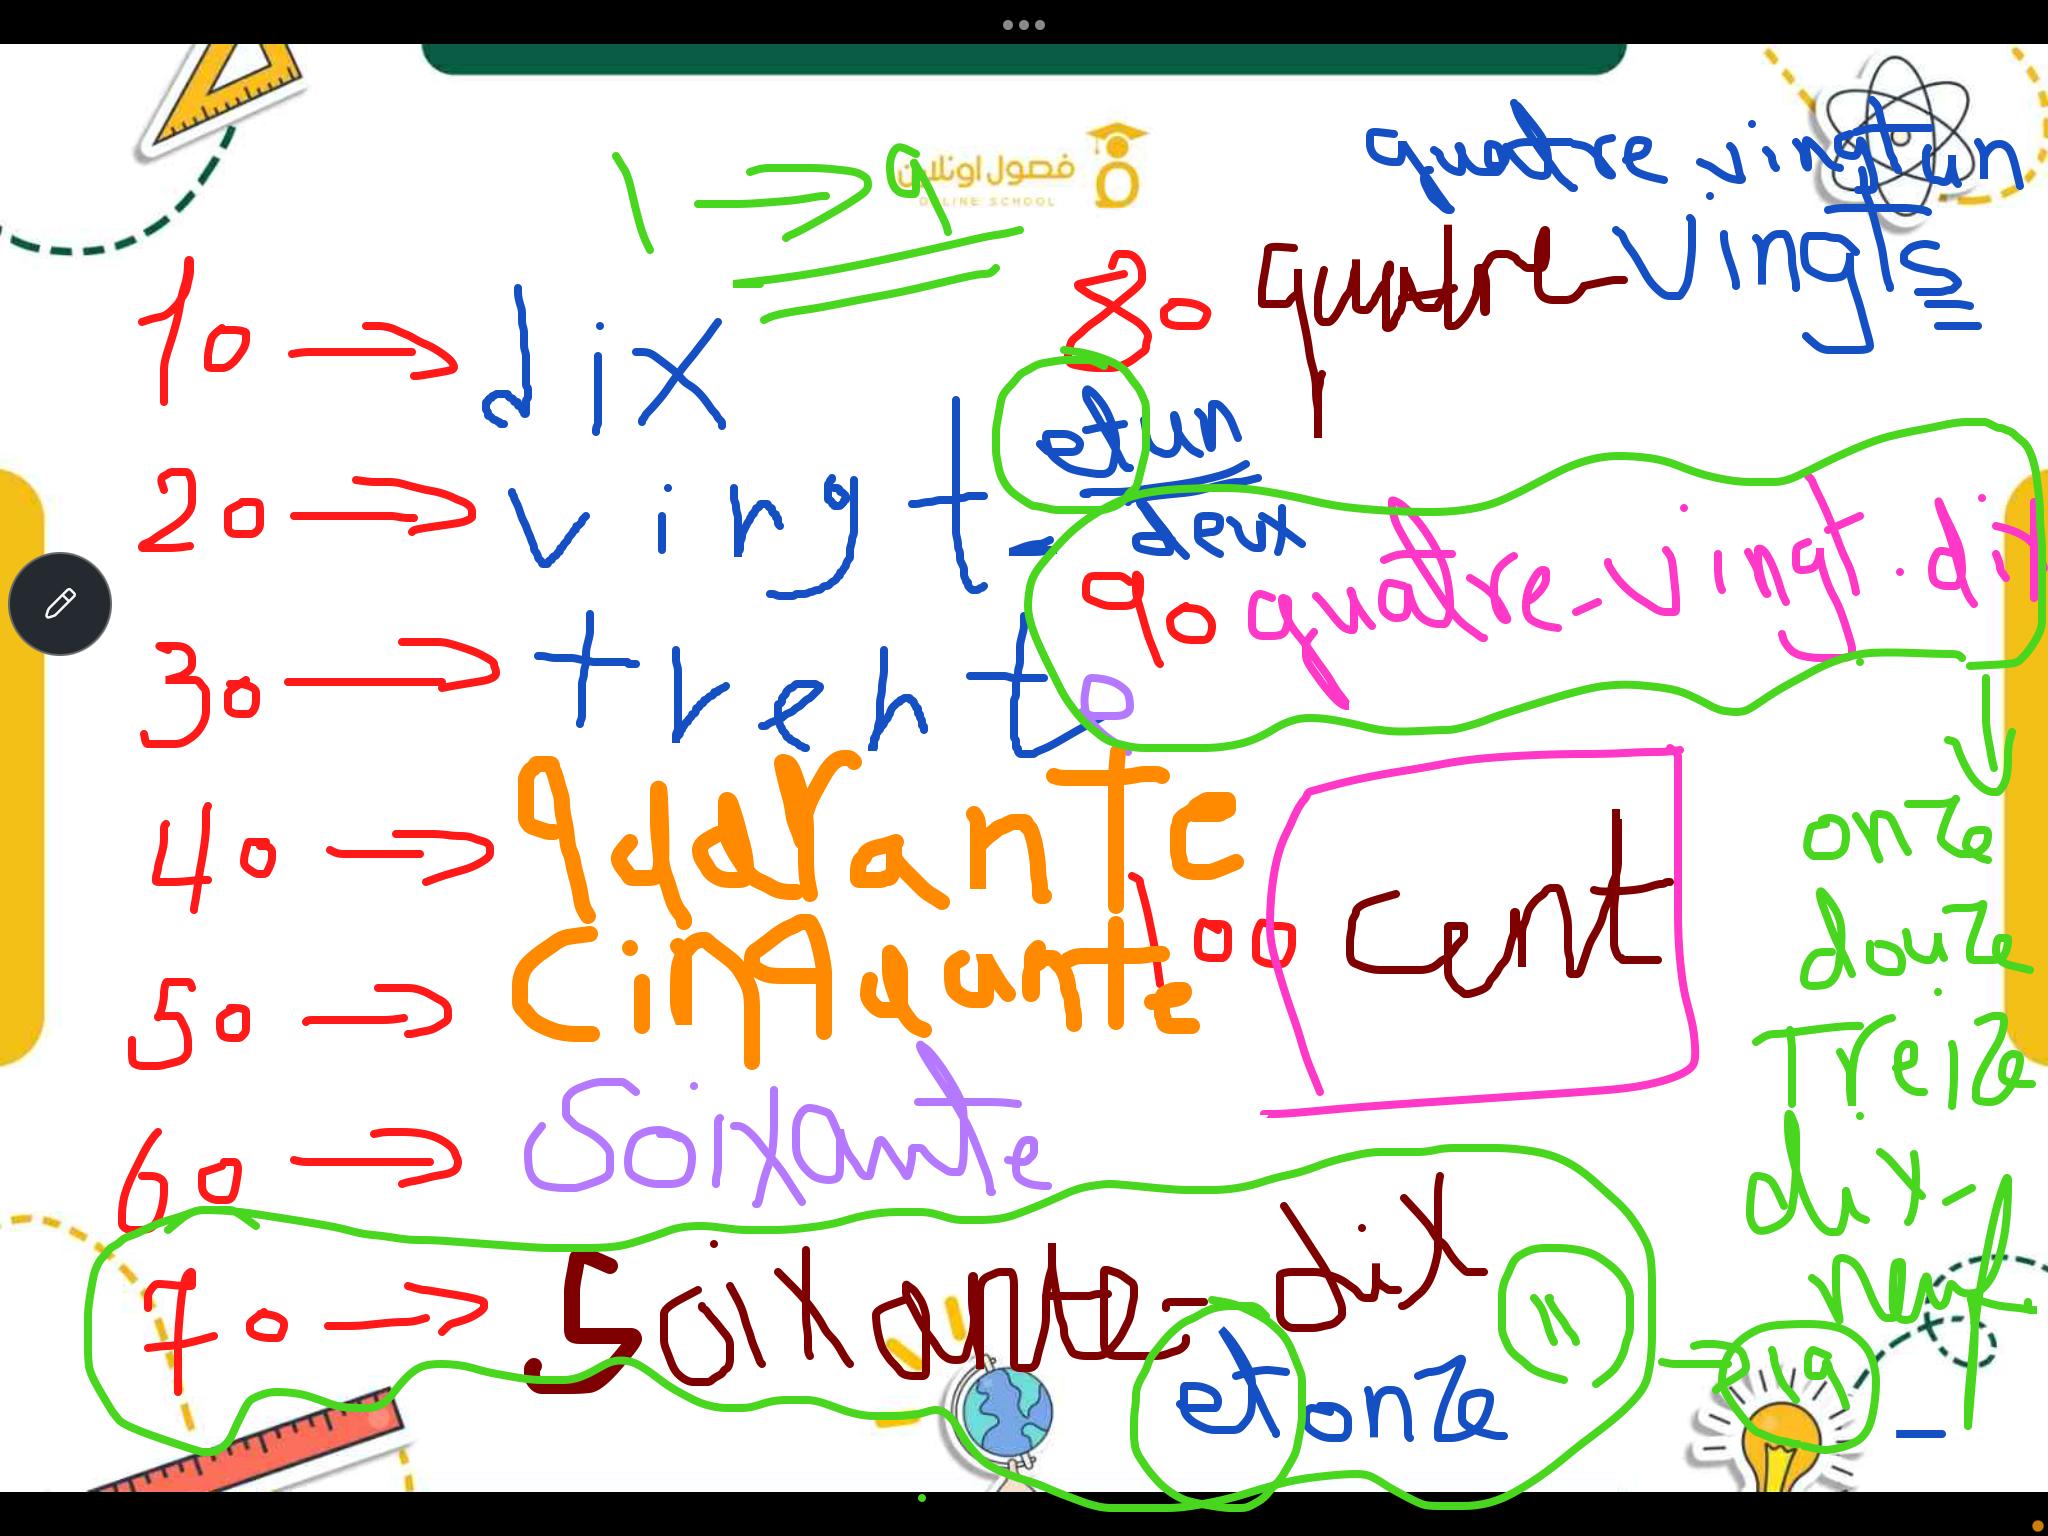 1 → 9
فصول اونلاين
ONLINE SCHOOL
10 → dix
20 → vingt et un
- deux
30 → trente
40 → quarante
50 → cinquante
60 → Soixante
70 → Soixante-dix 11 → 19
et onze
quatre vingt un
80 quatre-vingts
90 quatre-vingt.dix
100 cent
onze
douze
Treize
dix-
neuf